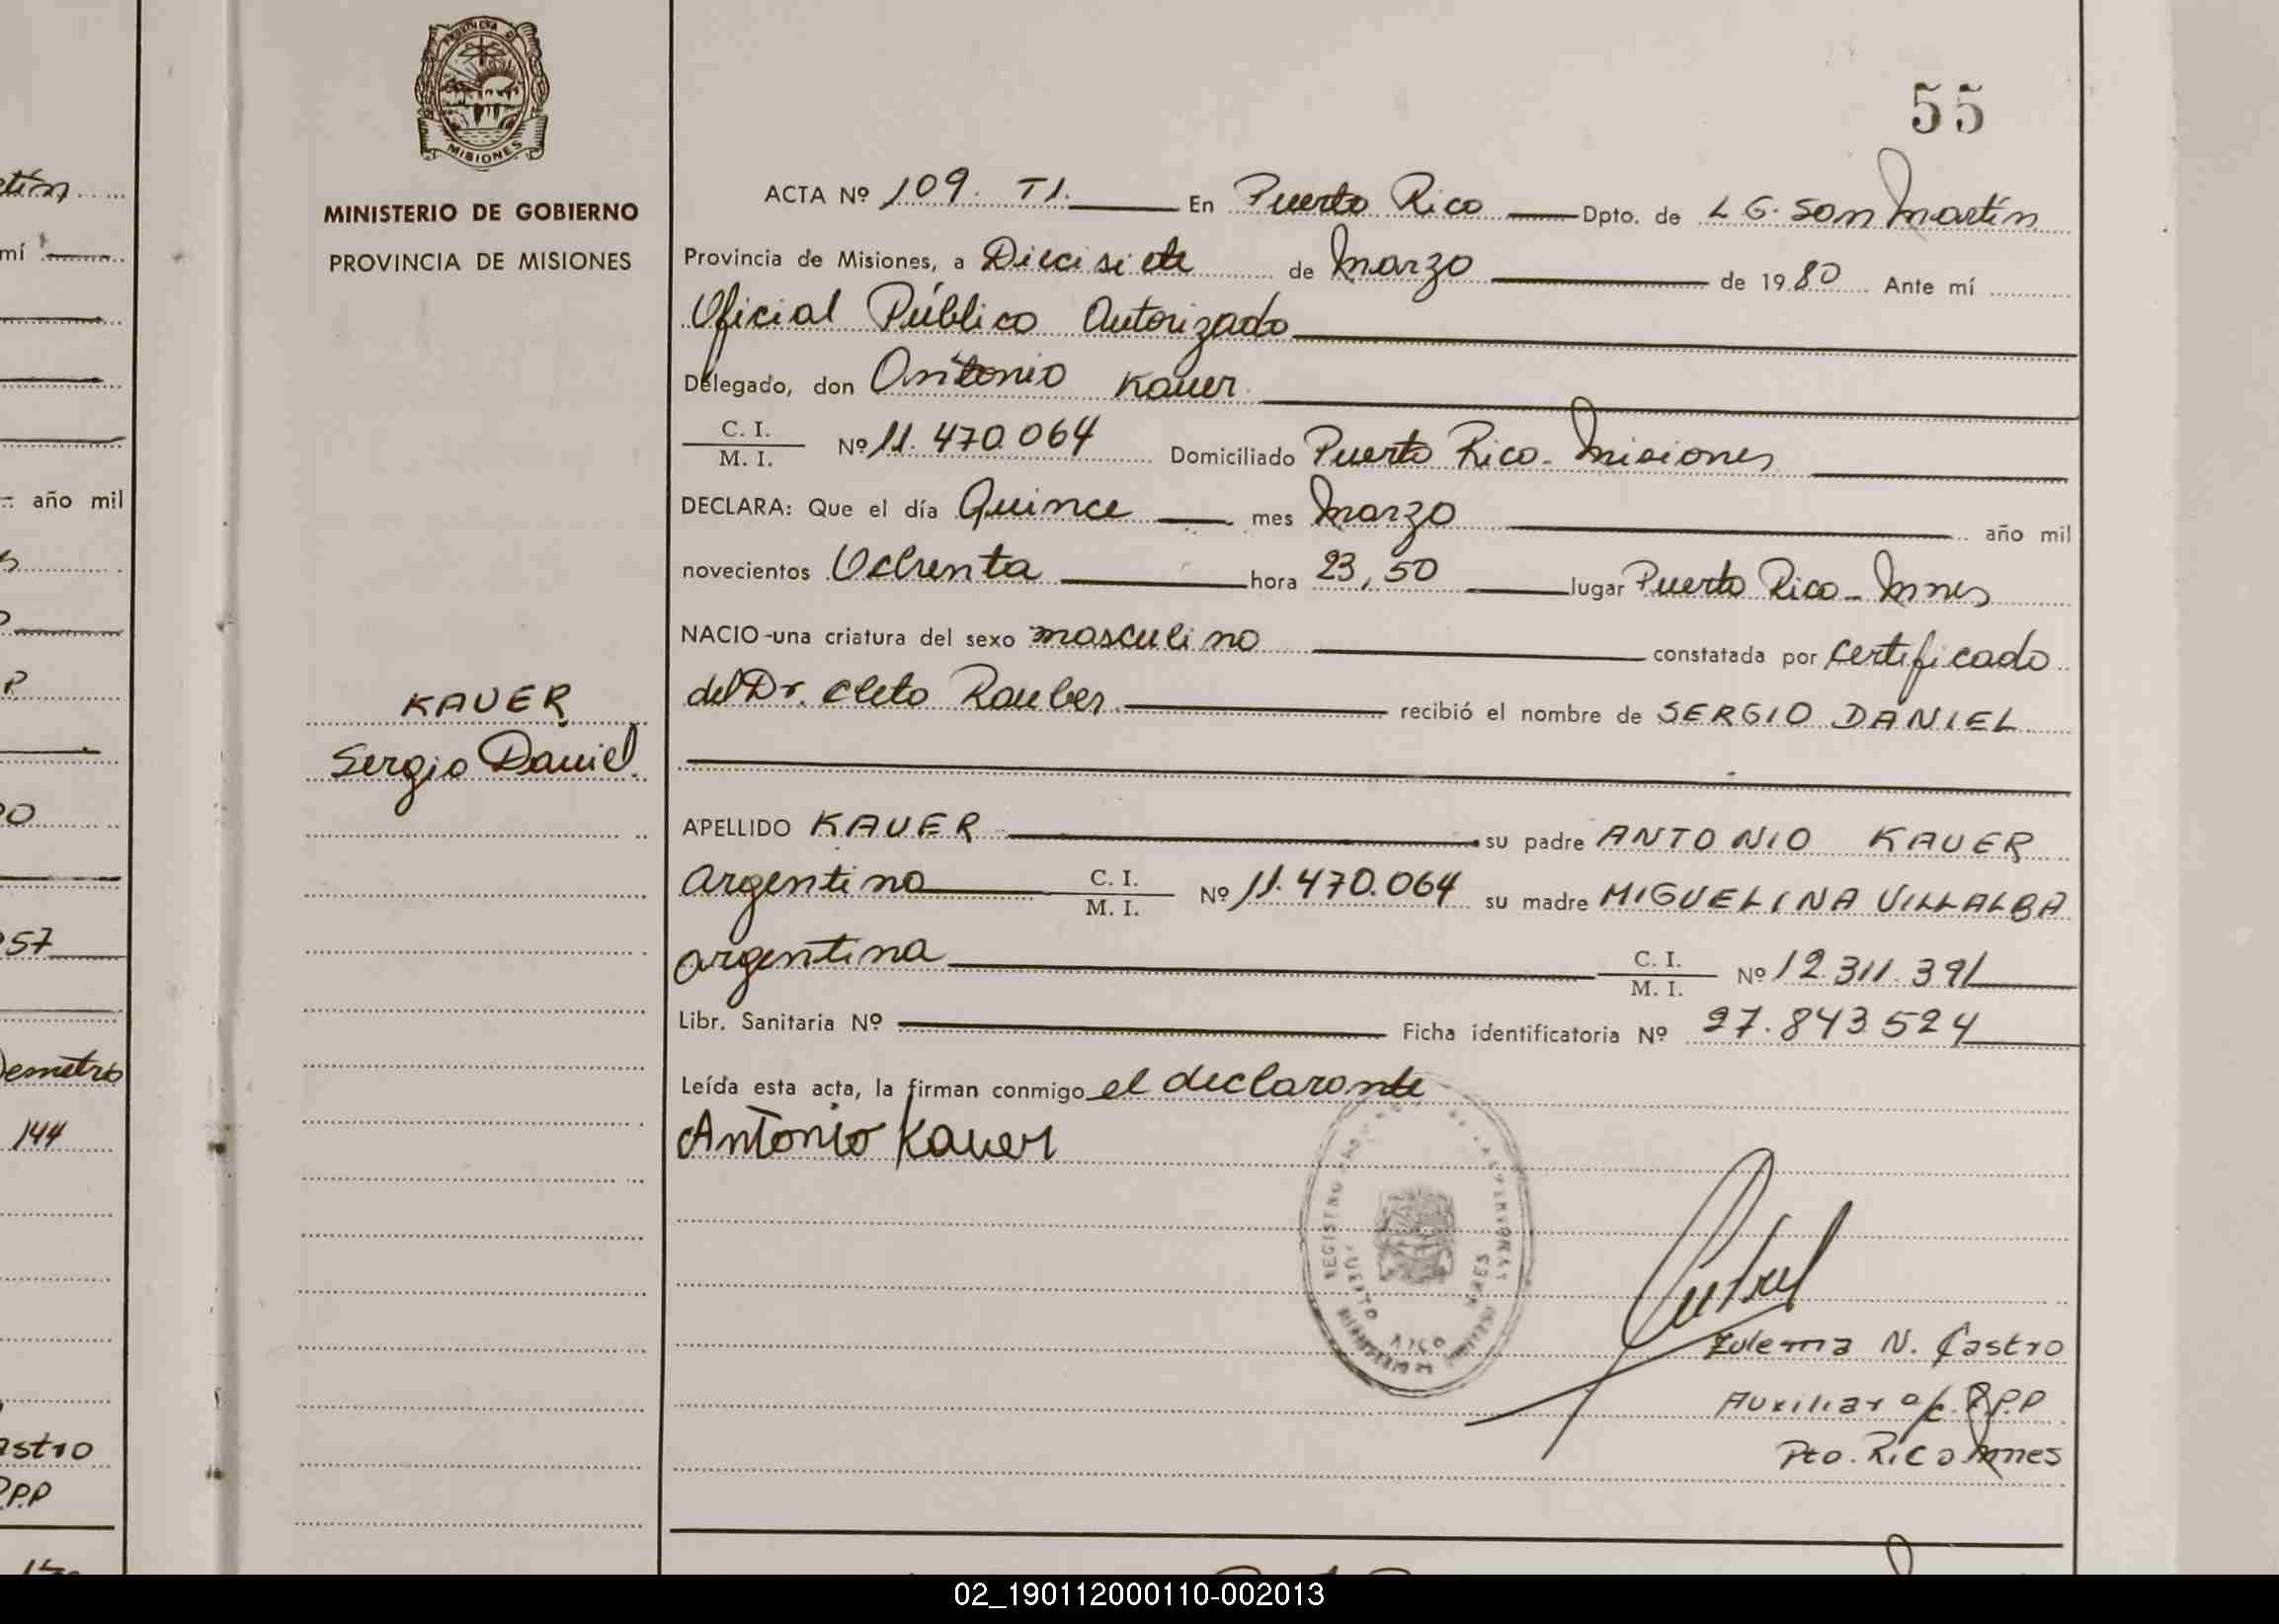 PROVINCIA D
MISIONES
MINISTERIO DE GOBIERNO
PROVINCIA DE MISIONES
55
ACTA Nº 109. T1. En Puerto Rico Dpto. de L G. San Martín
Provincia de Misiones, a Diecisiete de Marzo de 1980 Ante mí
Oficial Público Autorizado
Delegado, don Antonio Kauer
C. I.
M. I. Nº 11.470.064 Domiciliado Puerto Rico - Misiones
DECLARA: Que el día Quince mes Marzo año mil
novecientos Ochenta hora 23,50 lugar Puerto Rico - Mnes
NACIO-una criatura del sexo masculino constatada por certificado
del Dr. Cleto Rauber recibió el nombre de SERGIO DANIEL
KAUER
Sergio Daniel.
APELLIDO KAUER su padre ANTONIO KAUER
argentino C. I.
M. I. Nº 11.470.064 su madre MIGUELINA VILLALBA
argentina C. I.
M. I. Nº 12.311.391
Libr. Sanitaria Nº Ficha identificatoria Nº 27.843524
Leída esta acta, la firman conmigo el declarante
Antonio Kauer
REGISTRO
PUERTO RICO
Zulema N. Castro
Auxiliar a/c. R.P.P
Pto. Rico Mnes
tín
mí
año mil
P
57
emetrio
144
astro
P.P
02_190112000110-002013